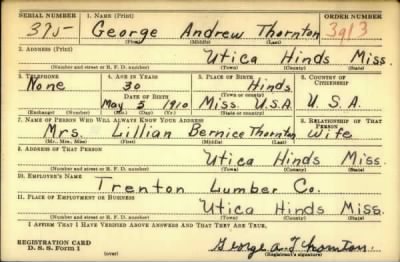 SERIAL NUMBER 1. NAME (Print) ORDER NUMBER
375- George Andrew Thornton 3913
(First) (Middle) (Last)
2. ADDRESS (Print)
Utica Hinds Miss.
(Number and street or R. F. D. number) (Town) (County) (State)
3. TELEPHONE 4. AGE IN YEARS 5. PLACE OF BIRTH 6. COUNTRY OF CITIZENSHIP
None 30 Hinds
DATE OF BIRTH (Town or county)
May 5 1910 Miss. U.S.A. U.S.A.
(Exchange) (Number) (Mo.) (Day) (Yr.) (State or country)
7. NAME OF PERSON WHO WILL ALWAYS KNOW YOUR ADDRESS 8. RELATIONSHIP OF THAT PERSON
Mrs. Lillian Bernice Thornton Wife
(Mr., Mrs., Miss) (First) (Middle) (Last)
9. ADDRESS OF THAT PERSON
Utica Hinds Miss.
(Number and street or R. F. D. number) (Town) (County) (State)
10. EMPLOYER'S NAME
Trenton Lumber Co.
11. PLACE OF EMPLOYMENT OR BUSINESS
Utica Hinds Miss.
(Number and street or R. F. D. number) (Town) (County) (State)
I AFFIRM THAT I HAVE VERIFIED ABOVE ANSWERS AND THAT THEY ARE TRUE.
REGISTRATION CARD
D. S. S. Form 1 (over) George A Thornton
(Registrant's signature)